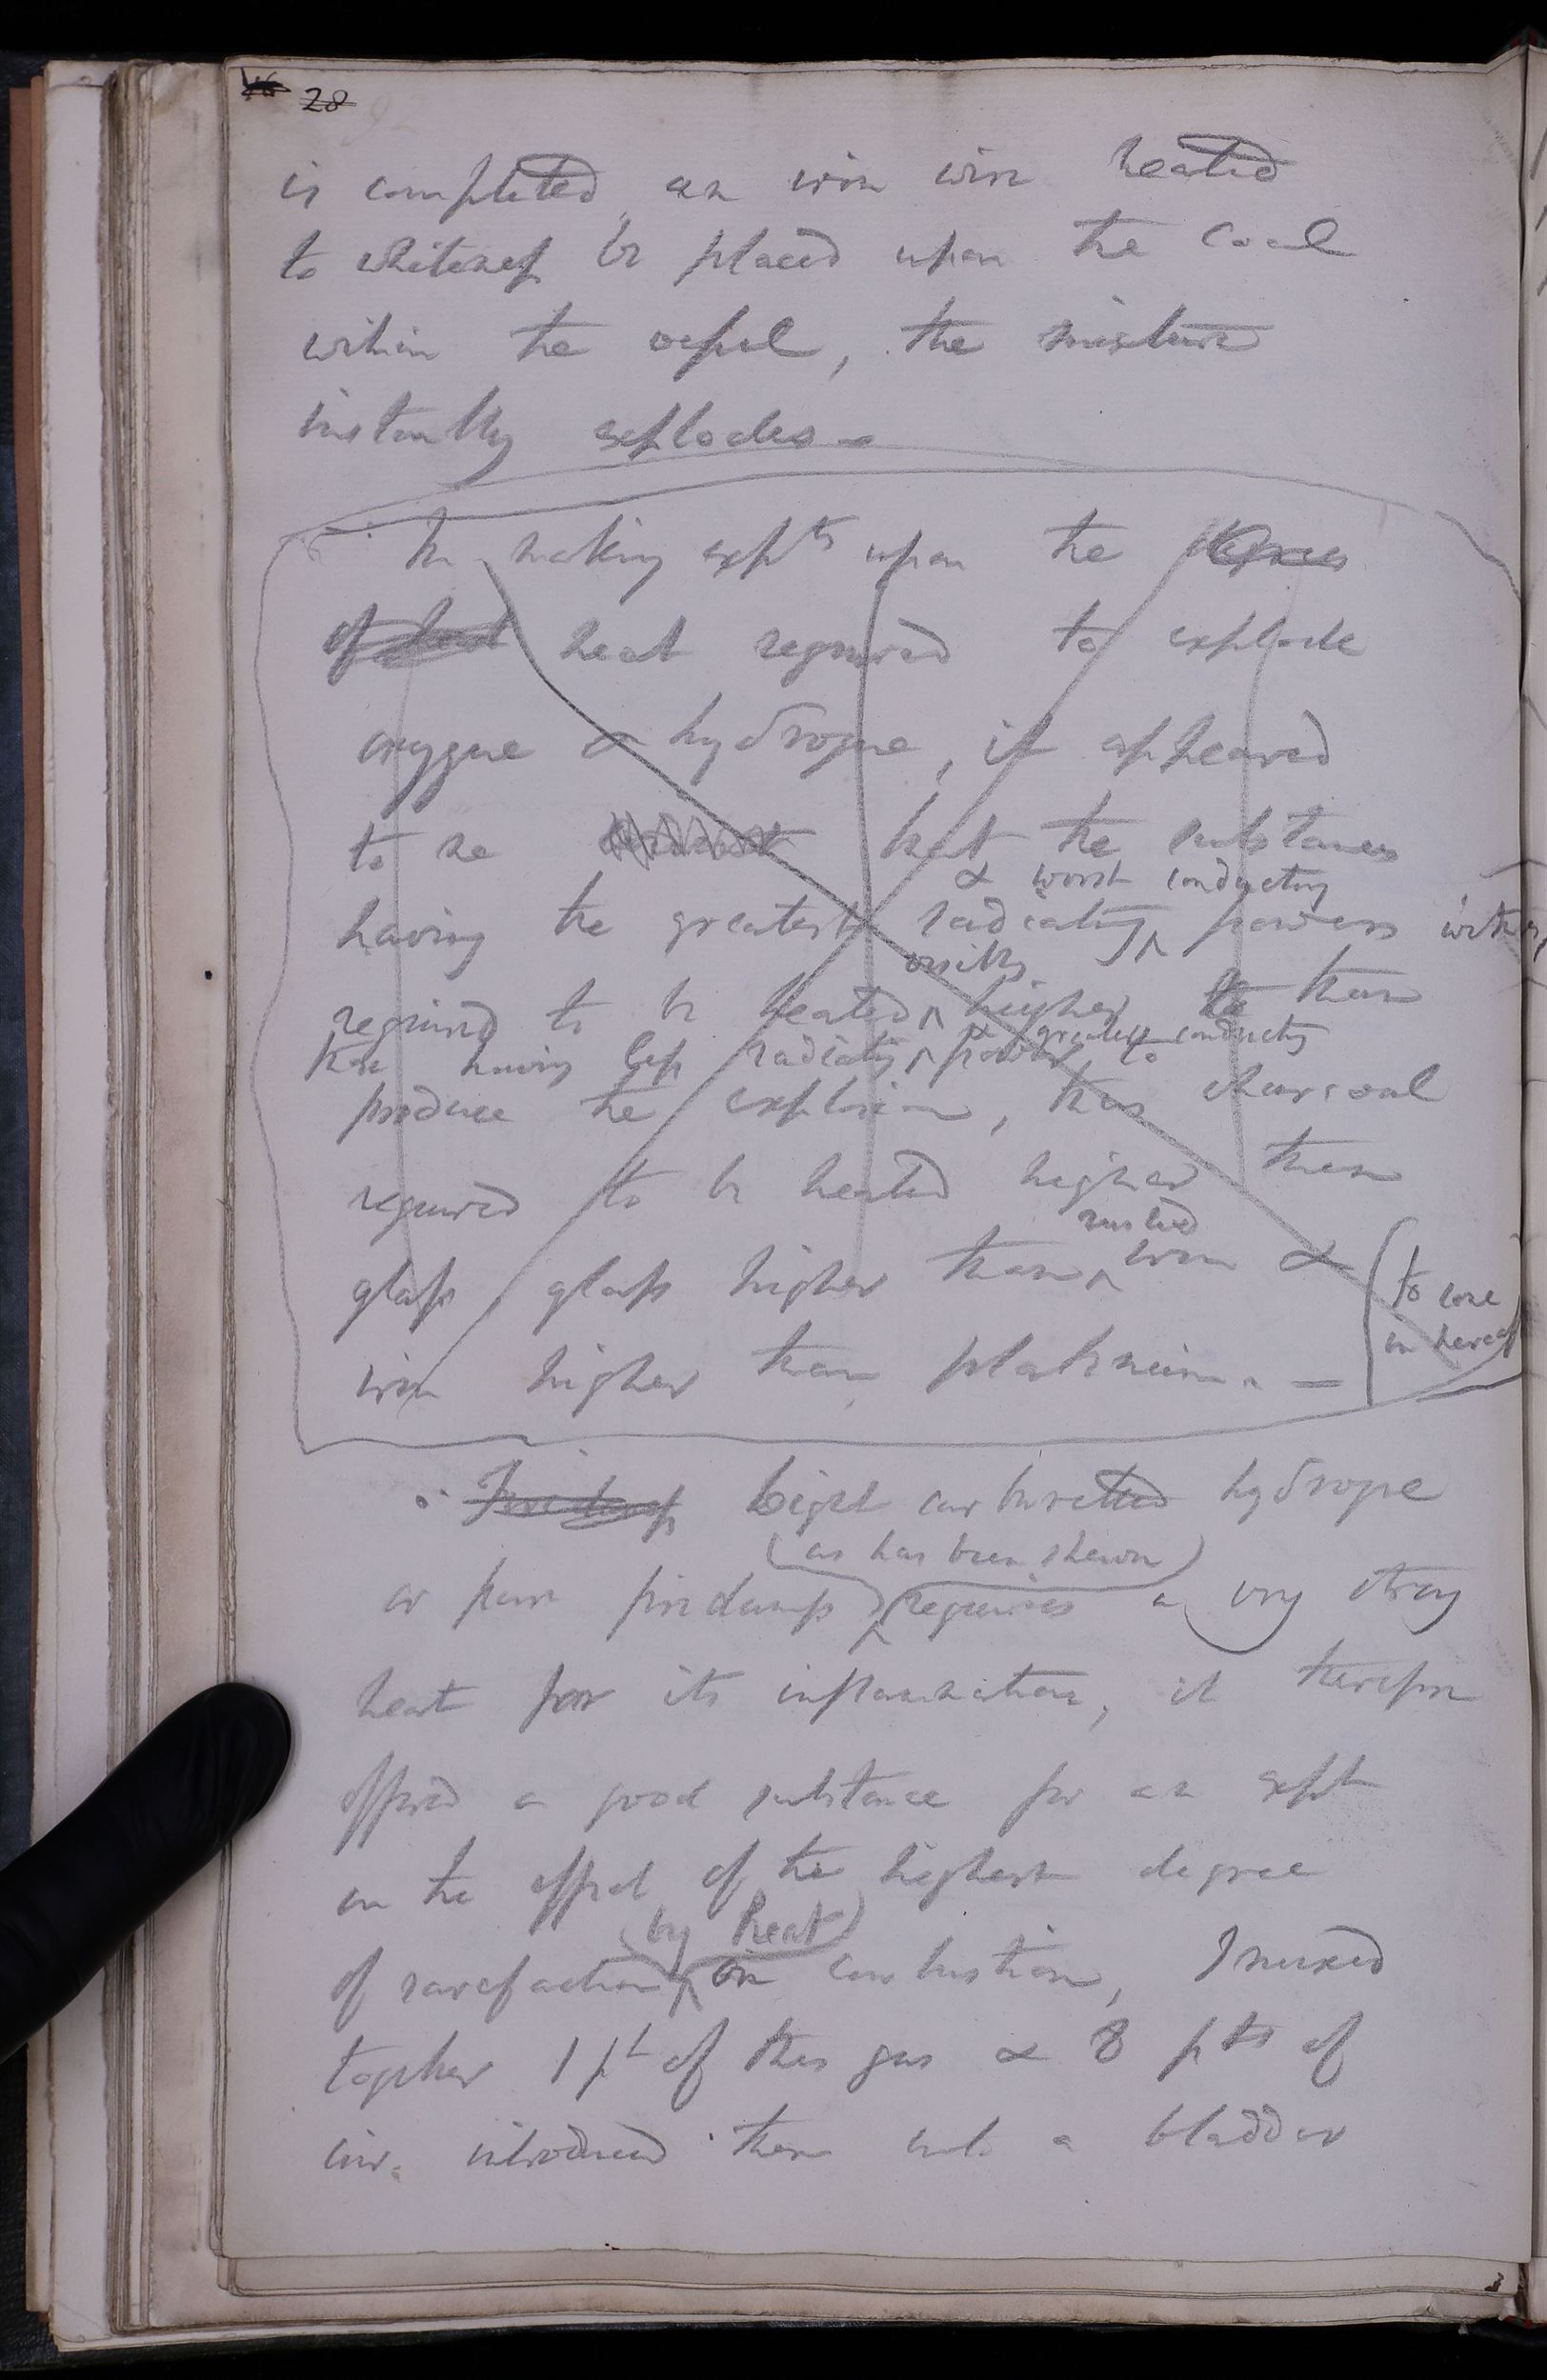 28
is completed, an iron wire heated
to whiteness be placed upon the coal
within the vessel, the mixture
instantly explodes -
In making exp^ts upon the
of heat heat required to explode
oxygene & hydrogene, it appeared
to me that the substances
& worst conducting
having the greatest radiating powers
visibly
required to be heated higher than
& greater conducting
those having less radiating powers to
produce the explosion, thus charcoal
required to be heated higher than
rusted
glass, glass higher than iron &
iron higher than platinum. =
(to come
in hereaf)
Firedamp Light carburetted hydrogene
(as has been shewn)
or pure firedamp requires a very strong
heat for its inflammation, it therefore
offered a good substance for an expt
on the effect of the highest degree
(by heat)
of rarefaction on combustion, I mixed
together 1 pt of this gas & 8 pts of
air. introduced them into a bladder
3